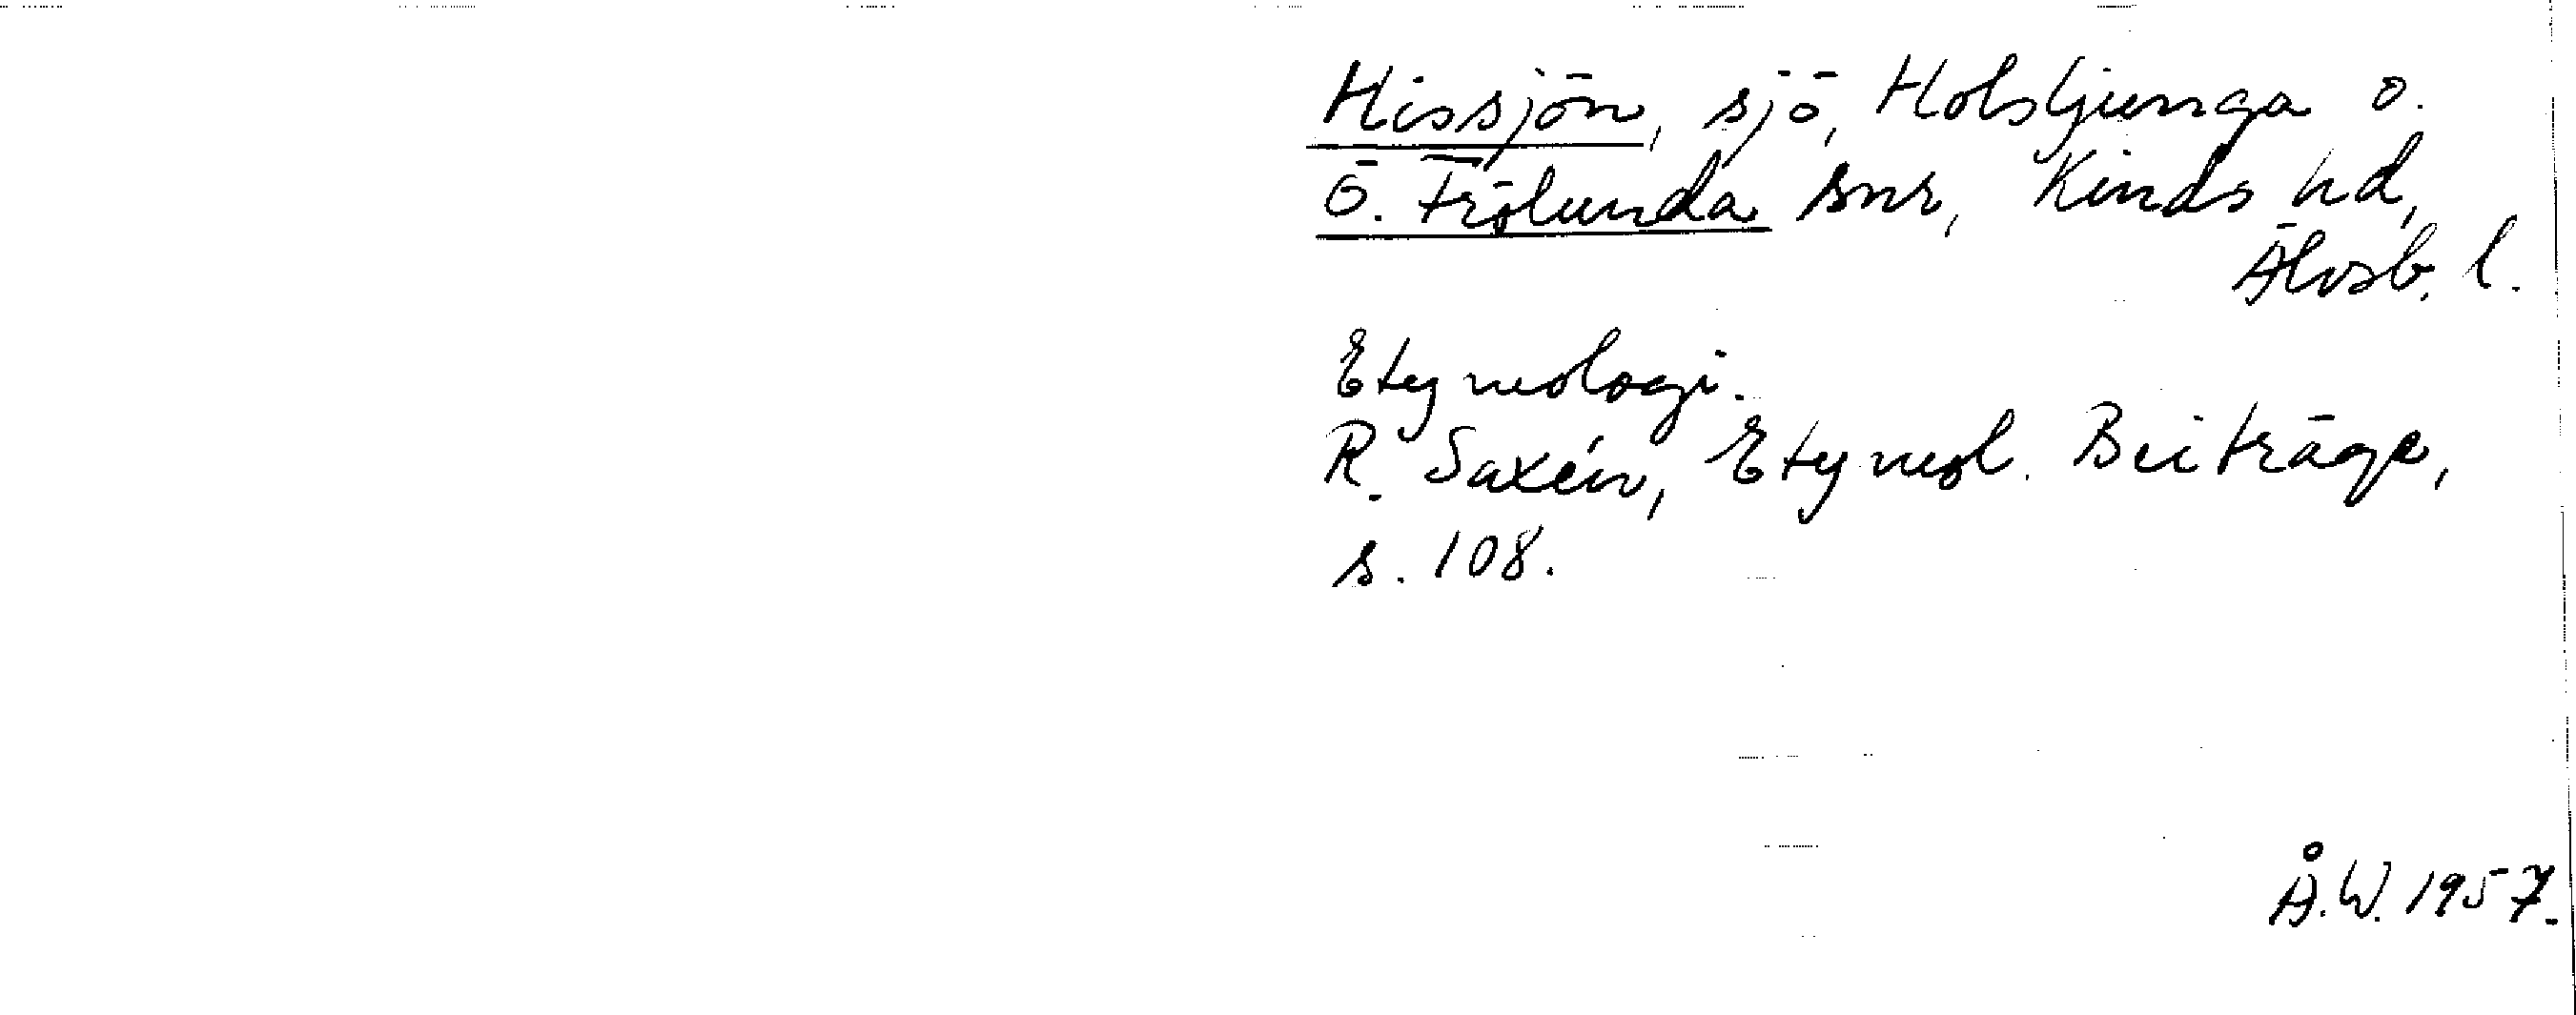 Hissjön, sjö, Holsljunga o.
Ö. Frölunda snr, Kinds hd,
Älvsb. l.
Etymologi.
R. Saxén, Etymol. Beiträge,
s. 108.
Å.W. 1957.